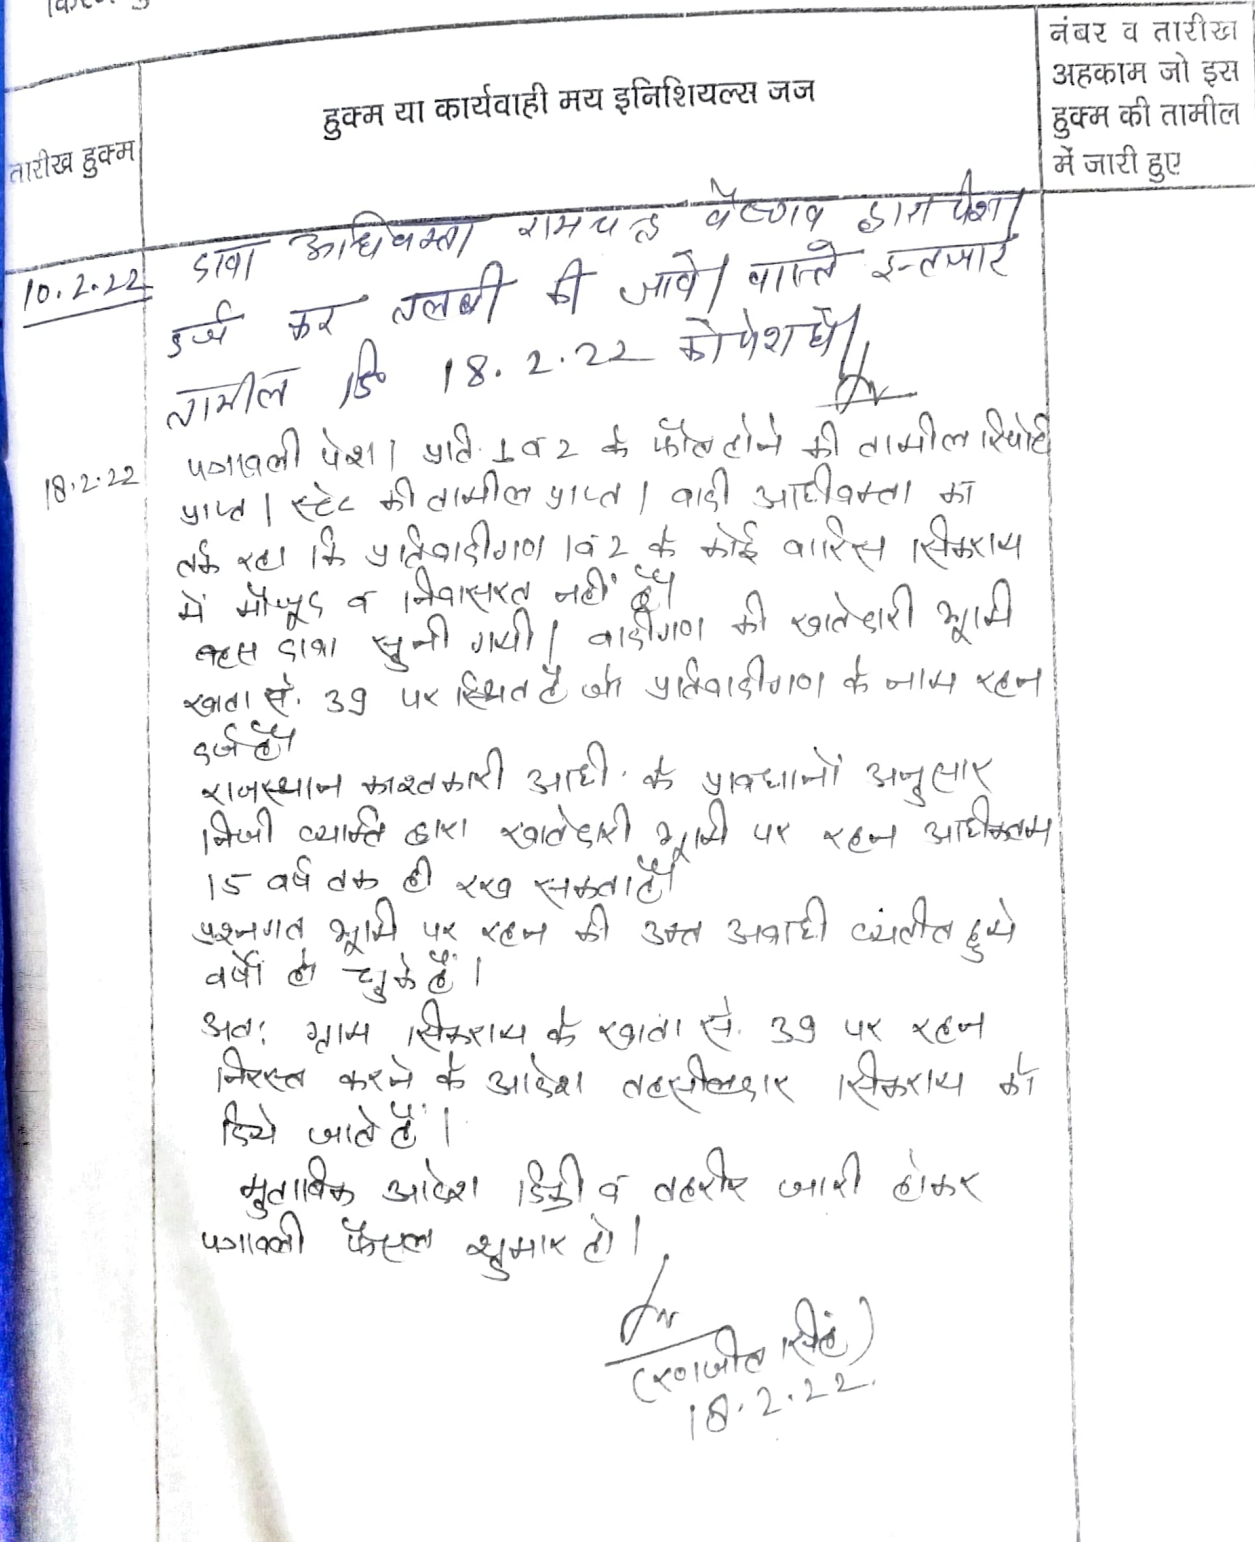 नंबर व तारीख
अहकाम जो इस
हुक्म की तामील
में जारी हुए
हुक्म या कार्यवाही मय इनिशियल्स जज
तारीख हुक्म
10.2.22
दावा अधिवक्ता रामचन्द्र वैष्णव द्वारा पेश।
दर्ज कर तलबी की जावे। वास्ते इन्तजार
तामील दि० 18.2.22 को पेश हो।
18.2.22
पत्रावली पेश। प्रति. 1 व 2 के फौत होने की तामील रिपोर्ट
प्राप्त। स्टेट की तामील प्राप्त। वादी अधीवक्ता का
तर्क रहा कि प्रतिवादीगण 1 व 2 के कोई वारिस सिकराय
में मौजूद व निवासरत नहीं है।
बहस दावा सुनी गयी। वादीगण की खातेदारी भूमि
खाता सं. 39 पर स्थित है जो प्रतिवादीगण के नाम रहन
दर्ज है।
राजस्थान काश्तकारी अधी. के प्रावधानों अनुसार
निजी व्यक्ति द्वारा खातेदारी भूमि पर रहन अधीकतम
15 वर्ष तक ही रख सकता है।
प्रश्नगत भूमि पर रहन की उक्त अवधी व्यतीत हुये
वर्षों हो चुके हैं।
अतः ग्राम सिकराय के खाता सं. 39 पर रहन
निरस्त करने के आदेश तहसीलदार सिकराय को
दिये जाते हैं।
मुताबिक आदेश डिक्री व तहरीर जारी होकर
पत्रावली फैसल शुमार हो।
(रणजीत सिंह)
18.2.22.